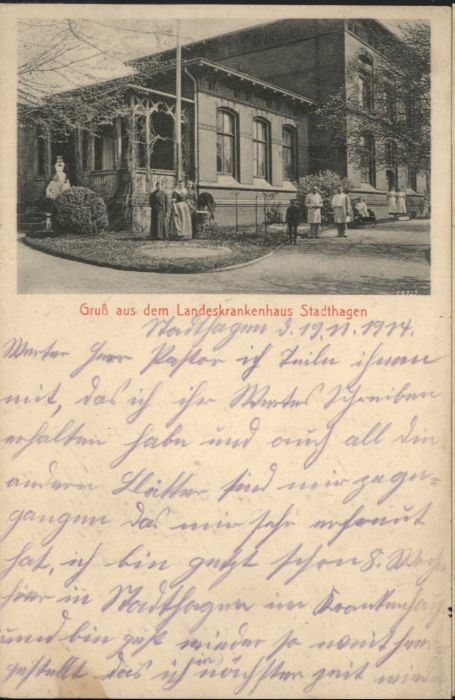 Gruß aus dem Landeskrankenhaus Stadthagen
Stadthagen d. 19.11.1914.
Werter Herr Pastor ich Teile ihnen
mit, das ich ihr Wertes Schreiben
erhalten habe und auch all die
andern Blätter sind mir zuge=
gangen das mir sehr erfreut
hat, ich bin jetzt schon 8. Woch
hier in Stadthagen im Krankenhaus
und bin jetzt wieder so weit her=
gestellt das ich in nächster zeit wieder